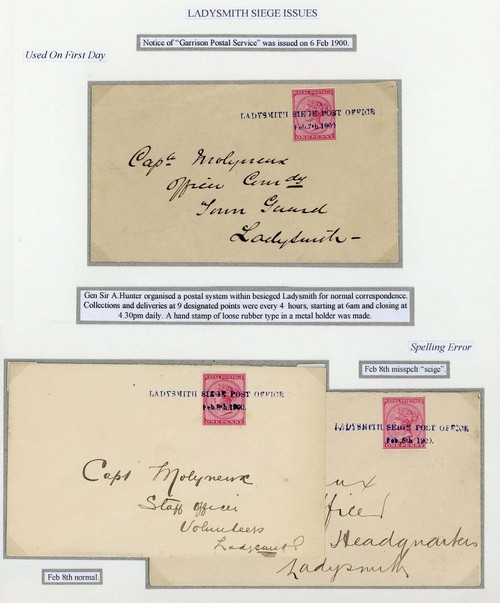 LADYSMITH SIEGE ISSUES
Notice of "Garrison Postal Service" was issued on 6 Feb 1900.
Used On First Day
NATAL POSTAGE
LADYSMITH SIEGE POST OFFICE
Feb.7th.1900
ONE PENNY
Capt Molyneux
Officer Comdg
Town Guard
Ladysmith
Gen Sir A.Hunter organised a postal system within besieged Ladysmith for normal correspondence.
Collections and deliveries at 9 designated points were every 4 hours, starting at 6am and closing at
4.30pm daily. A hand stamp of loose rubber type in a metal holder was made.
Spelling Error
Feb 8th misspelt "seige".
NATAL POSTAGE
LADYSMITH SIEGE POST OFFICE
Feb.8th.1900.
ONE PENNY
Capt Molyneux
Staff officer
Volunteers
Feb 8th normal.
NATAL POSTAGE
LADYSMITH SEIGE POST OFFICE
Feb.8th.1900.
ONE PENNY
ux
fficer
Headquarters
Ladysmith